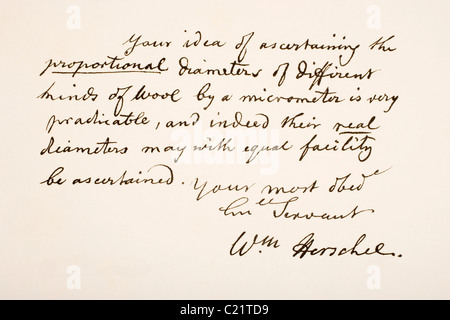 Your idea of ascertaining the
proportional diameters of different
kinds of wool by a micrometer is very
practicable, and indeed their real
diameters may with equal facility
be ascertained. Your most obedᵉ
humˡᵉ Servant
Wᵐ Herschel.
alamy
Image ID: C21TD9
www.alamy.com